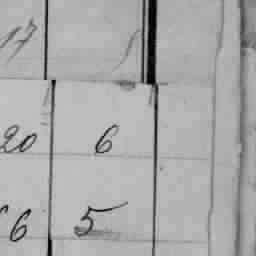 17
20 6
6 5